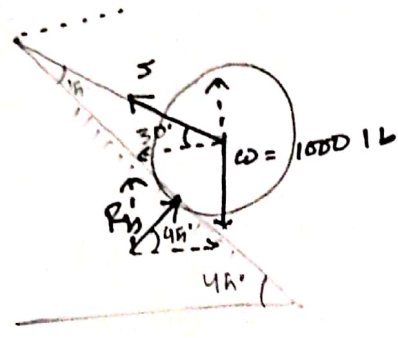 S
15
30°
ω = 1000 lb
Rb
45°
45°